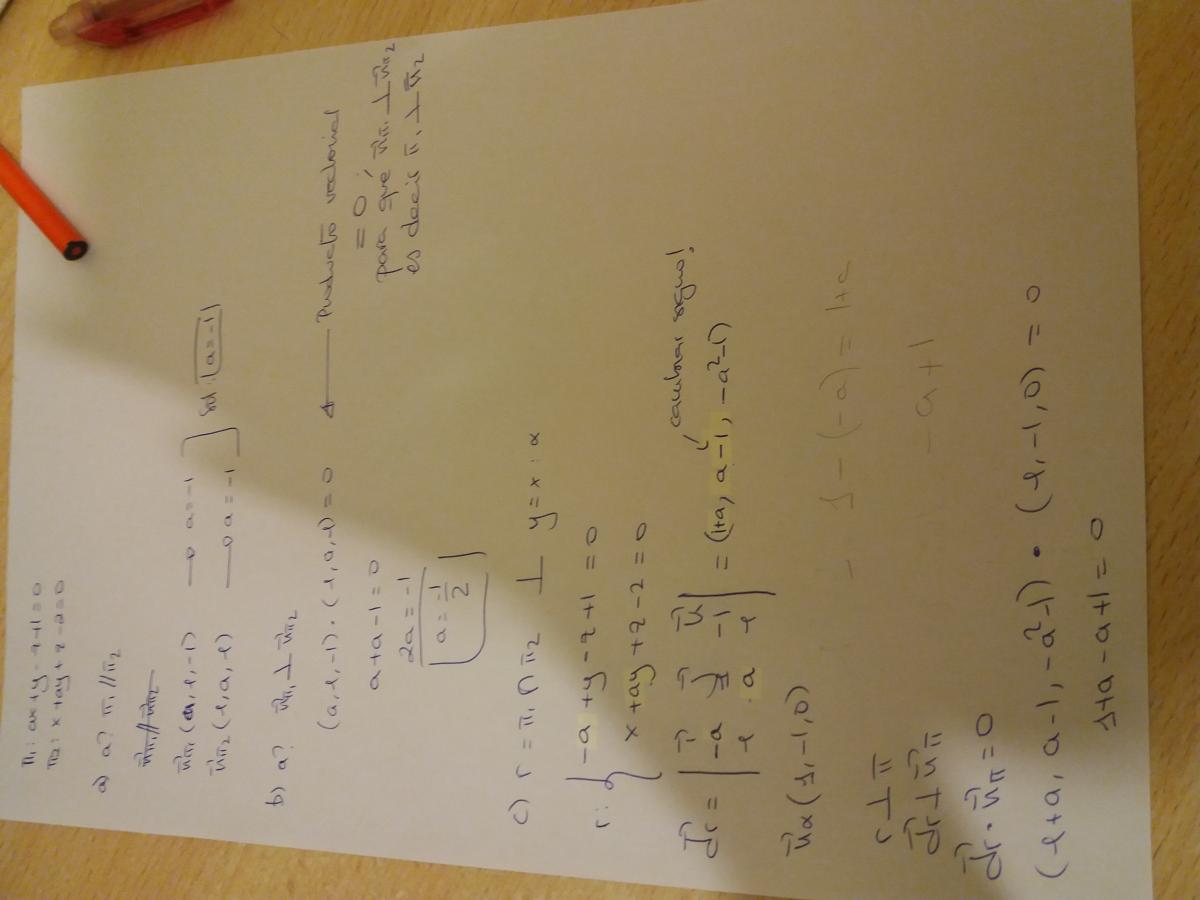 π1: ax+y-z+1=0
π2: x+ay+z-2=0
a) a? π1//π2
u⃗π1//u⃗π2
u⃗π1 (a,1,-1) → a=-1
u⃗π2 (1,a,1) → a=-1 } Sol: a=-1
b) a? u⃗π1 ⊥ u⃗π2
(a,1,-1)·(1,a,1)=0 ← Producto vectorial
= 0
para qué u⃗π1 ⊥ u⃗π2
es decir π1 ⊥ π2
a+a-1=0
2a=-1
a=-1/2
c) r=π1∩π2 ⊥ y=x: α
r: { -a+y-z+1=0
x+ay+z-2=0
d⃗r = | i⃗ j⃗ u⃗
-a 1 -1
1 a 1 | = (1+a, a-1, -a²-1)
cambiar signo!
u⃗α(1,-1,0)
- 1-(-a) = 1+a
-a+1
r⊥π
d⃗r⊥u⃗π
d⃗r·u⃗π=0
(1+a, a-1, -a²-1)·(1,-1,0)=0
1+a-a+1=0